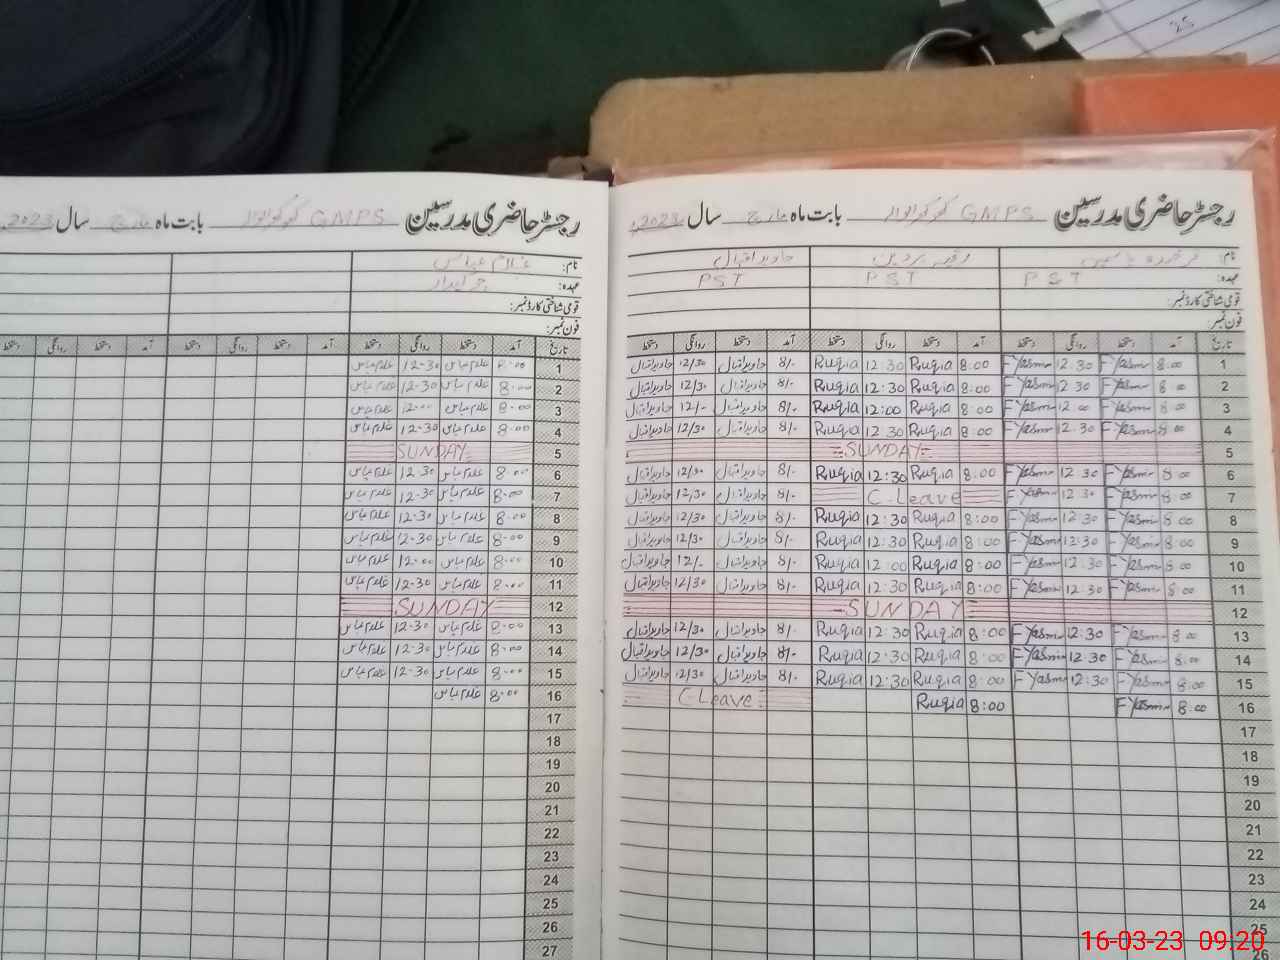 25
رجسٹر حاضری مدرسین GMPS بابت ماہ مارچ سال 2023ء
نام: جاوید اقبال
عہدہ: PST PST PST
قومی شناختی کارڈ نمبر:
فون نمبر:
تاریخ آمد دستخط روانگی دستخط آمد دستخط روانگی دستخط آمد دستخط روانگی دستخط
1 8:00 F Yasmin 12:30 F Yasmin 8:00 Ruqia 12:30 Ruqia 8/- جاوید اقبال 12/30 جاوید اقبال
2 8:00 F Yasmin 12:30 F Yasmin 8:00 Ruqia 12:30 Ruqia 8/- جاوید اقبال 12/30 جاوید اقبال
3 8:00 F Yasmin 12:00 F Yasmin 8:00 Ruqia 12:00 Ruqia 8/- جاوید اقبال 12/- جاوید اقبال
4 8:00 F Yasmin 12:30 F Yasmin 8:00 Ruqia 12:30 Ruqia 8/- جاوید اقبال 12/30 جاوید اقبال
5 SUNDAY
6 8:00 F Yasmin 12:30 F Yasmin 8:00 Ruqia 12:30 Ruqia 8/- جاوید اقبال 12/30 جاوید اقبال
7 8:00 F Yasmin 12:30 F Yasmin C.Leave 8/- جاوید اقبال 12/30 جاوید اقبال
8 8:00 F Yasmin 12:30 F Yasmin 8:00 Ruqia 12:30 Ruqia 8/- جاوید اقبال 12/30 جاوید اقبال
9 8:00 F Yasmin 12:30 F Yasmin 8:00 Ruqia 12:30 Ruqia 8/- جاوید اقبال 12/30 جاوید اقبال
10 8:00 F Yasmin 12:30 F Yasmin 8:00 Ruqia 12:00 Ruqia 8/- جاوید اقبال 12/- جاوید اقبال
11 8:00 F Yasmin 12:30 F Yasmin 8:00 Ruqia 12:30 Ruqia 8/- جاوید اقبال 12/30 جاوید اقبال
12 SUNDAY
13 8:00 F Yasmin 12:30 F Yasmin 8:00 Ruqia 12:30 Ruqia 8/- جاوید اقبال 12/30 جاوید اقبال
14 8:00 F Yasmin 12:30 F Yasmin 8:00 Ruqia 12:30 Ruqia 8/- جاوید اقبال 12/30 جاوید اقبال
15 8:00 F Yasmin 12:30 F Yasmin 8:00 Ruqia 12:30 Ruqia 8/- جاوید اقبال 12/30 جاوید اقبال
16 8:00 F Yasmin 8:00 Ruqia C.Leave
17
18
19
20
21
22
23
24
25
26
رجسٹر حاضری مدرسین GMPS بابت ماہ مارچ سال 2023ء
نام: غلام عباس
عہدہ:
قومی شناختی کارڈ نمبر:
فون نمبر:
تاریخ آمد دستخط روانگی دستخط آمد دستخط روانگی دستخط آمد دستخط روانگی دستخط
1 8-00 غلام عباس 12-30 غلام عباس
2 8-00 غلام عباس 12-30 غلام عباس
3 8-00 غلام عباس 12-00 غلام عباس
4 8-00 غلام عباس 12-30 غلام عباس
5 SUNDAY
6 8-00 غلام عباس 12-30 غلام عباس
7 8-00 غلام عباس 12-30 غلام عباس
8 8-00 غلام عباس 12-30 غلام عباس
9 8-00 غلام عباس 12-30 غلام عباس
10 8-00 غلام عباس 12-00 غلام عباس
11 8-00 غلام عباس 12-30 غلام عباس
12 SUNDAY
13 8-00 غلام عباس 12-30 غلام عباس
14 8-00 غلام عباس 12-30 غلام عباس
15 8-00 غلام عباس 12-30 غلام عباس
16 8-00 غلام عباس
17
18
19
20
21
22
23
24
25
26
27
16-03-23 09:20